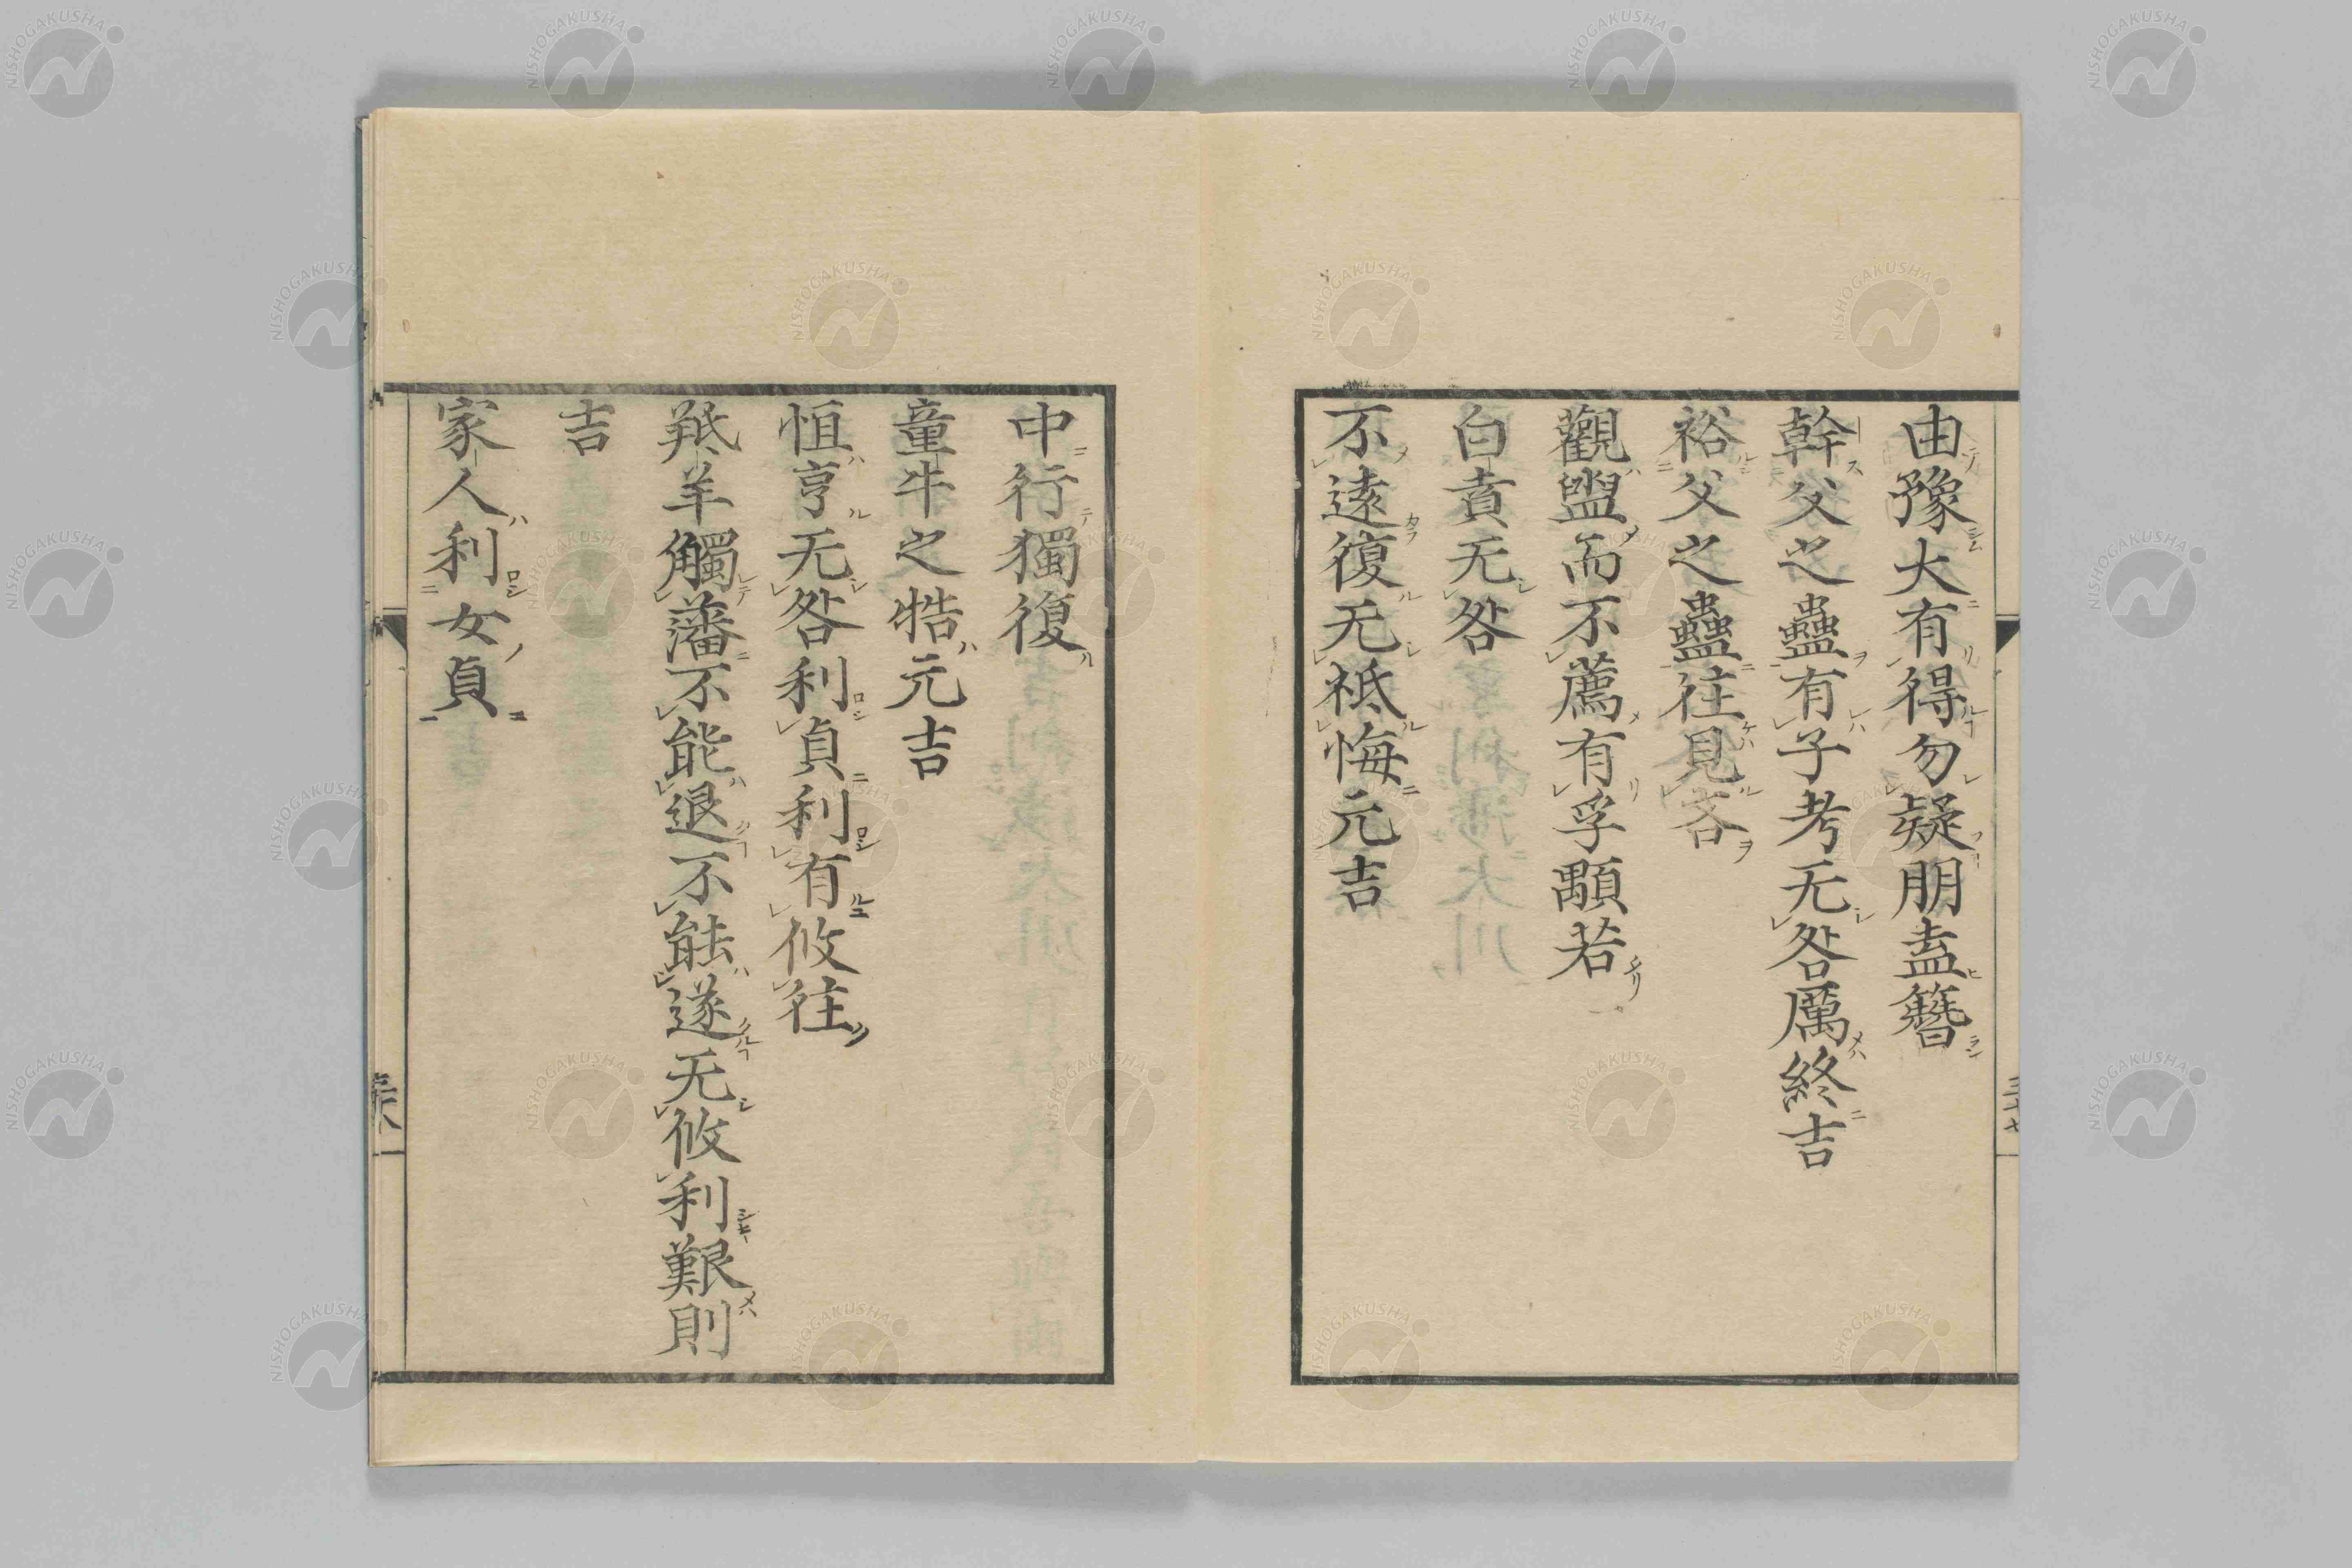 由豫大有得勿疑朋盍簪
幹父之蠱有子考无咎厲終吉
裕父之蠱往見吝
觀盥而不薦有孚顒若
白賁无咎
不遠復无祗悔元吉
中行獨復
童牛之牿元吉
恒亨无咎利貞利有攸往
羝羊觸藩不能退不能遂无攸利艱則
吉
家人利女貞
NISHOGAKUSHA